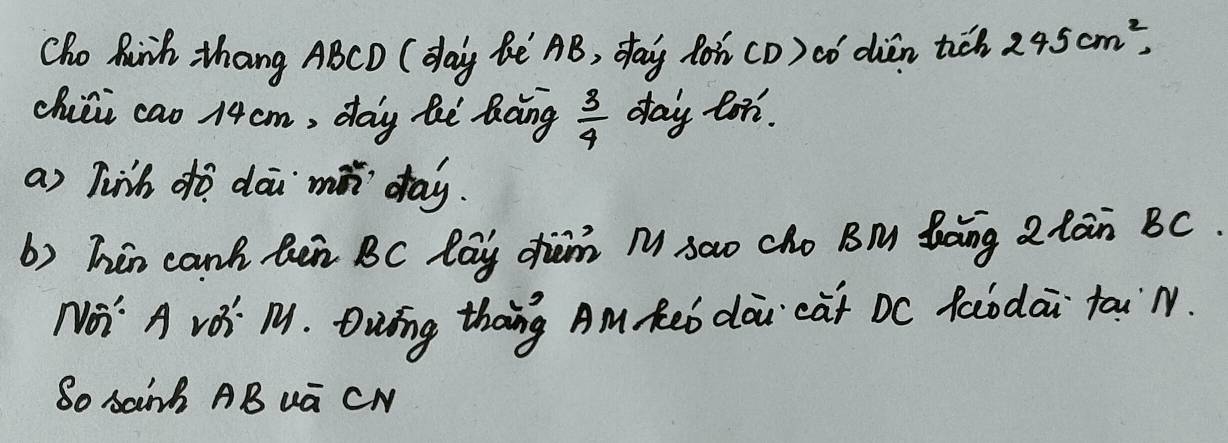 Cho hình thang ABCD (đáy bé AB, đáy lớn CD) có diện tích 245cm²,
chiều cao 14cm, đáy bé bằng 3/4 đáy lớn.
a) Tính độ dài mỗi đáy.
b) Trên cạnh bên BC lấy điểm M sao cho BM bằng 2 lần BC.
Nối A với M. Đường thẳng AM kéo dài cắt DC kéo dài tại N.
So sánh AB và CN